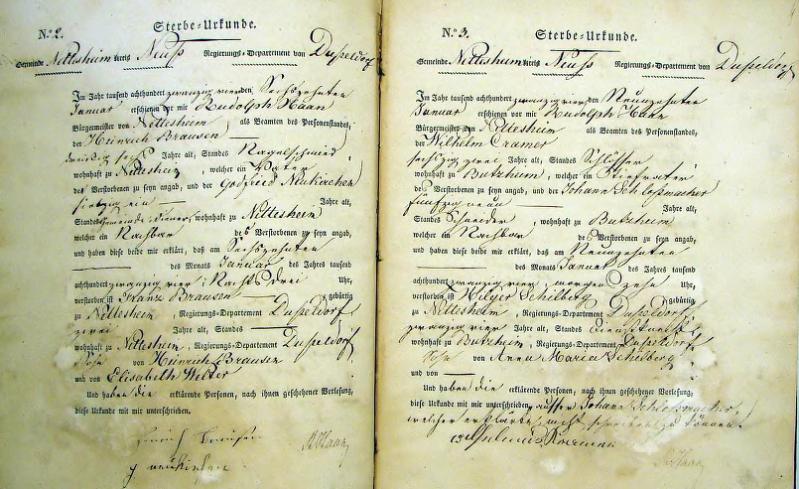 N.º 2. Sterbe-Urkunde.
Gemeinde Nettesheim Kreis Neuß Regierungs-Departement von Dußeldorf
Im Jahr tausend achthundert zwanzig vier den Sechszehnten
Januar erschienen vor mir Rudolph Haan
Bürgermeister von Nettesheim als Beamten des Personenstandes,
der Heinrich Brausen
dreißig sechs Jahre alt, Standes Nagelschmied
wohnhaft zu Nettesheim, welcher ein Vater
des Verstorbenen zu seyn angab, und der Godfried Neukirchen
siebzig ein Jahre alt,
Standes Gemeinde-diener, wohnhaft zu Nettesheim
welcher ein Nachbar des Verstorbenen zu seyn angab,
und haben diese beide mir erklärt, daß am Sechszehnten
des Monats Januar des Jahres tausend
achthundert zwanzig vier, Nachts drei Uhr,
verstorben ist Franz Brausen gebürtig
zu Nettesheim, Regierungs-Departement Dußeldorf
zwei Jahre alt, Standes
wohnhaft zu Nettesheim, Regierungs-Departement Dußeldorf
Sohn von Heinrich Brausen
und von Elisabeth Welter
Und haben die erklärende Personen, nach ihnen geschehener Vorlesung,
diese Urkunde mit mir unterschrieben.
RHaan
N.º 3. Sterbe-Urkunde.
Gemeinde Nettesheim Kreis Neuß Regierungs-Departement von Dußeldorf
Im Jahr tausend achthundert zwanzig vier den Neunzehnten
Januar erschienen vor mir Rudolph Haan
Bürgermeister von Nettesheim als Beamten des Personenstandes,
der Wilhelm Cramer
sechszig zwei Jahre alt, Standes Schlösser
wohnhaft zu Butzheim, welcher ein Stiefvater
des Verstorbenen zu seyn angab, und der Johann Schloßmacher
fünfzig neun Jahre alt,
Standes Schneider, wohnhaft zu Butzheim
welcher ein Nachbar des Verstorbenen zu seyn angab,
und haben diese beide mir erklärt, daß am Neunzehnten
des Monats Januar des Jahres tausend
achthundert zwanzig vier, morgens zehn Uhr,
verstorben ist Hilger Schilberg gebürtig
zu Nettesheim, Regierungs-Departement Dußeldorf
zwanzig vier Jahre alt, Standes Dienstknecht
wohnhaft zu Butzheim, Regierungs-Departement Dußeldorf
Sohn von Anna Maria Schilberg
und von
Und haben die erklärende Personen, nach ihnen geschehener Vorlesung,
diese Urkunde mit mir unterschrieben, ausser Johann Schloßmacher,
welcher erklärte, nicht schreiben zu können.
RHaan